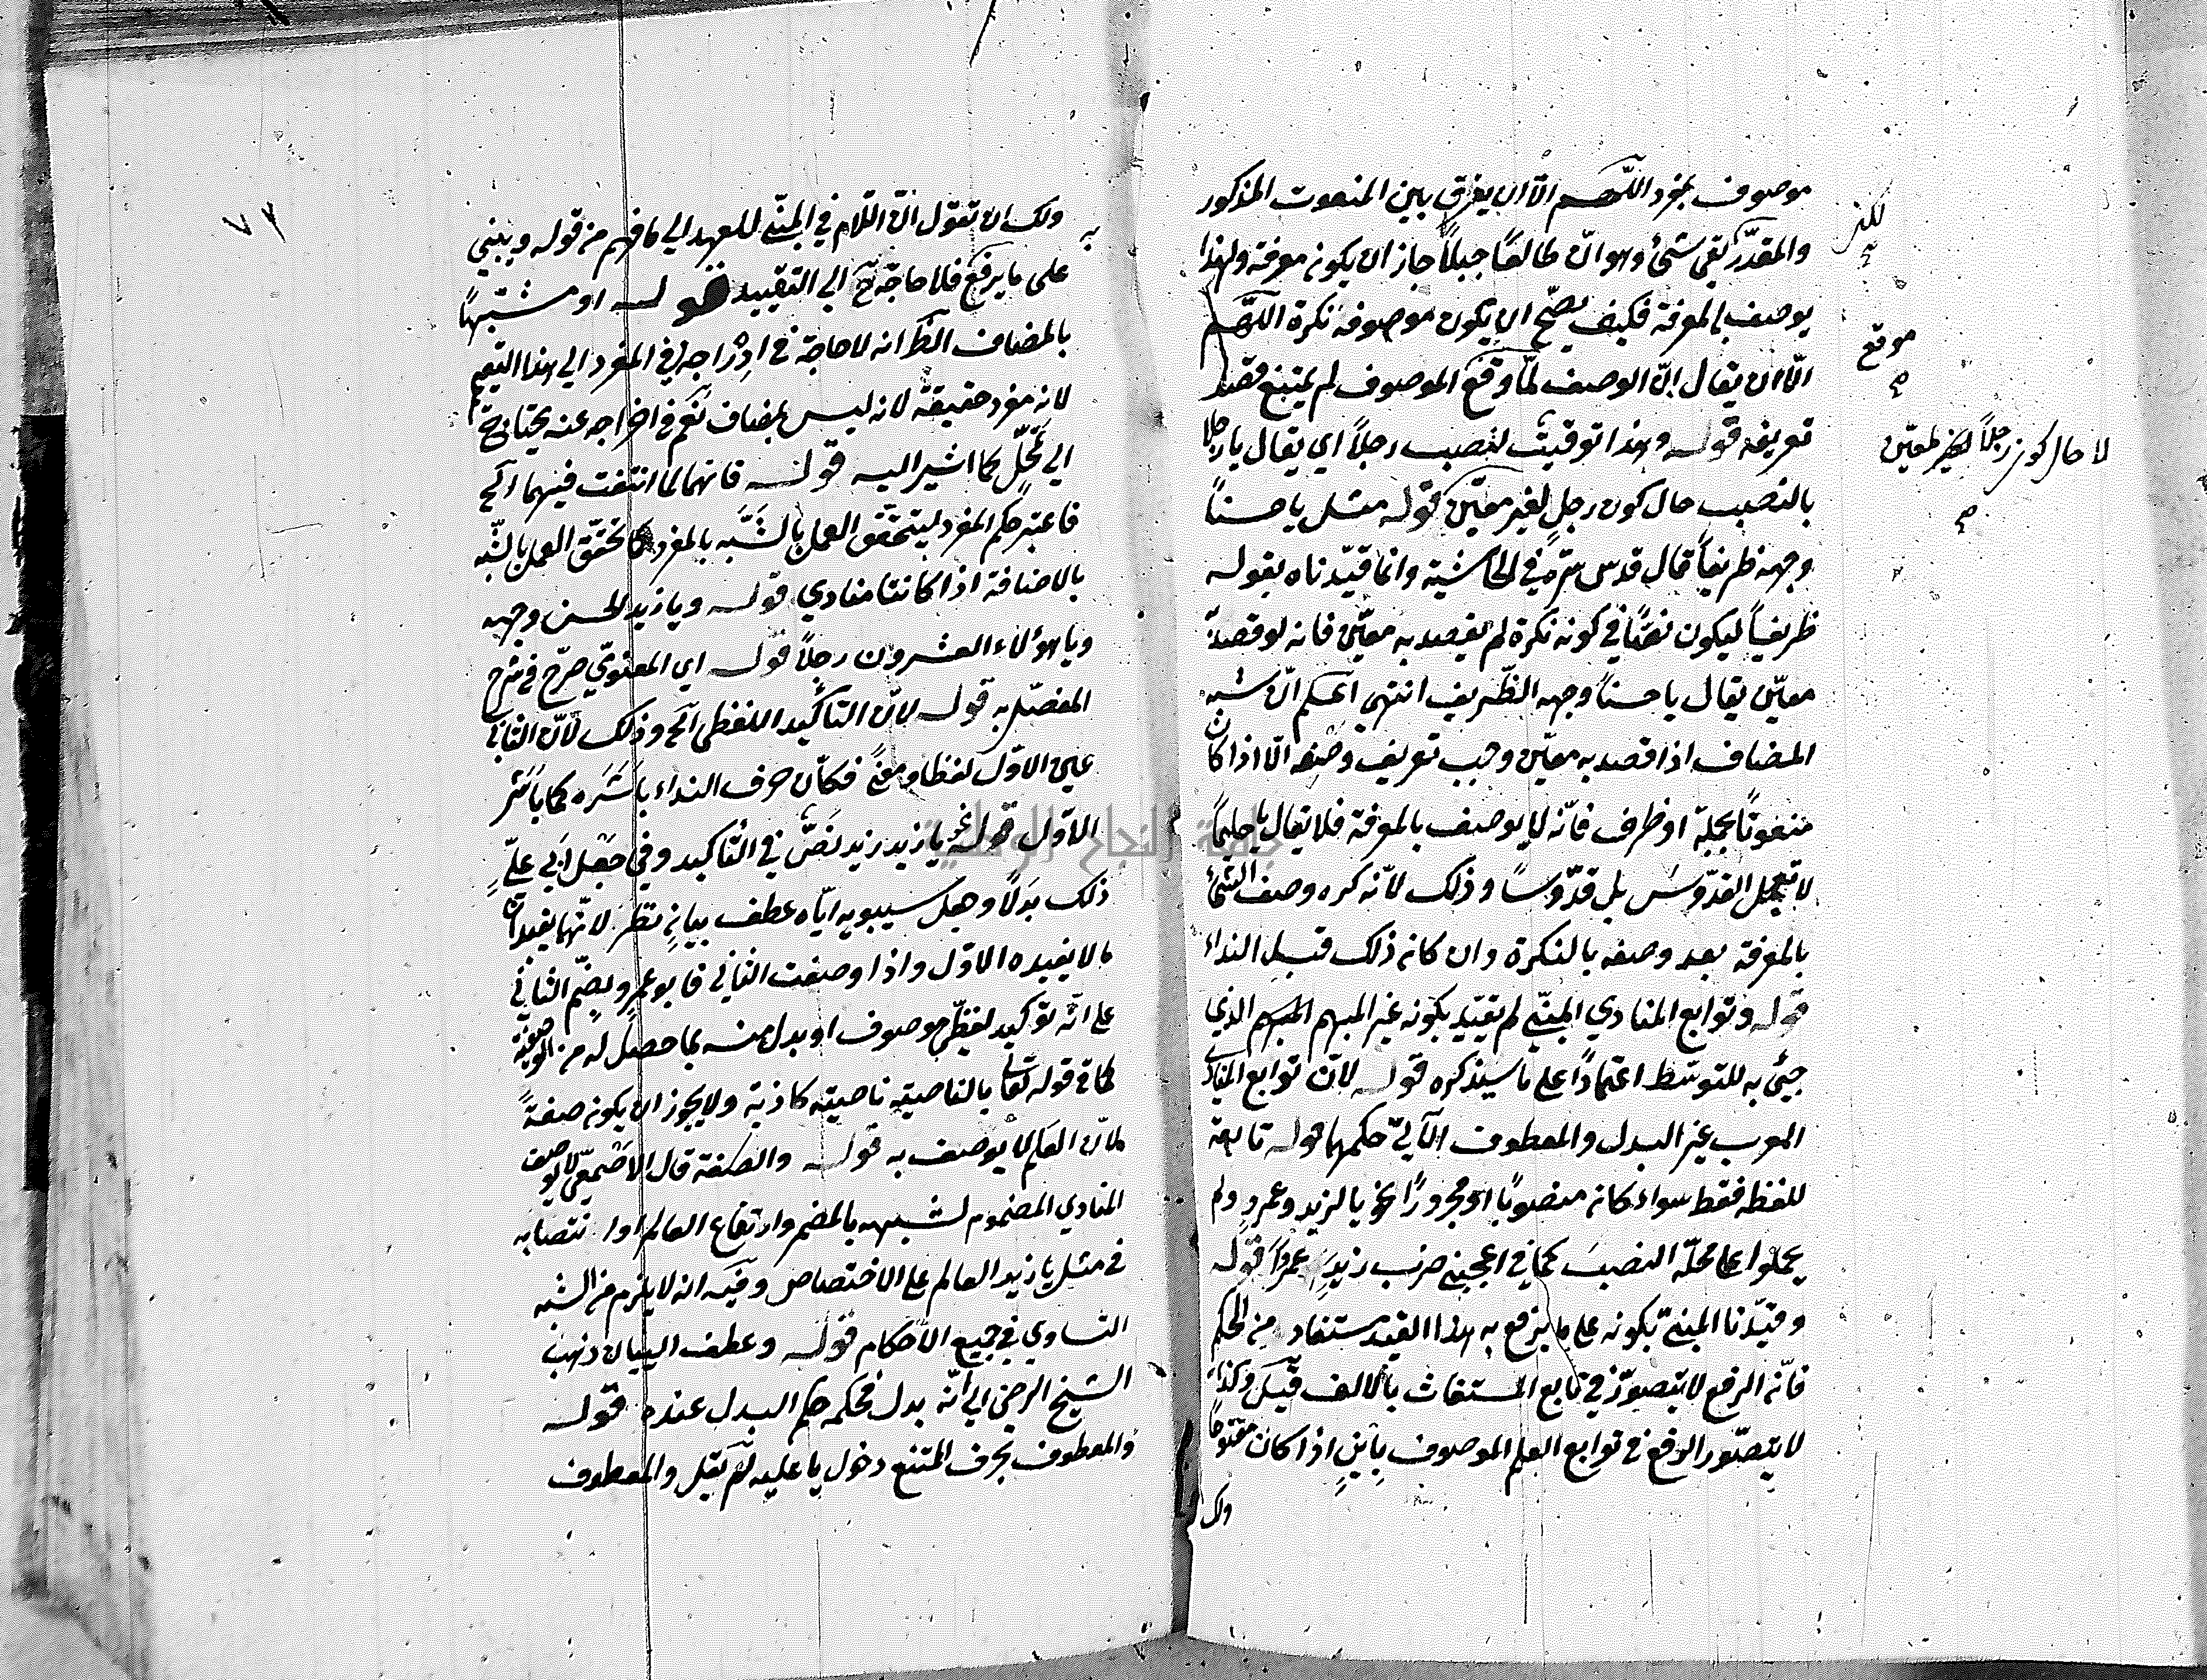 موصوف بمفرد اللّهم الّا ان يفرق بين المنعوت المذكور
والمقدّر بقي شئ وهو انّ طالعًا جبلًا جاز ان يكون معرفة ولهذا
يوصف بالمعرفة فكيف يصّح ان يكون موصوفه نكرة اللّهم
الّا ان يقال انّ الوصف لمّا وقع الموصوف لم يمتنع قصد
تعريفه قوله وهذا توقيت لنصب رجلاً اي يقال يا رجلا
بالنصب حال كون رجلٍ لغير معيّن قوله مثل يا حسناً
وجهه ظريفاً قال قدس سرّه في الحاشية وانما قيّدناه بقوله
ظريفاً ليكون نصًّا في كونه نكرة لم يقصد به معيّن فانه لو قصد به
معيّن يقال يا حسناً وجهه الظّريف انتهى اعلم انّ شبه
المضاف اذا قصد به معيّن وجب تعريف وصفه الّا اذا كان
منعوتًا بجملة او ظرف فانّه لا يوصف بالمعرفة فلا يقال يا حليمًا
لا تعجل القدّوس بل قدّوسًا وذلك لانّه كره وصف الشئ
بالمعرفة بعد وصفه بالنكرة وان كان ذلك قبل النداء
قوله وتوابع المنادي المبنّي لم يقيّد بكونه غير المبهم المبهم الذي
جئ به للتوسّط اعتمادًا على ما سيذكره قوله لانّ توابع المنادى
المعرب غير البدل والمعطوف الآتي حكمهما قوله تابعة
للفظه فقط سواء كان منصوبًا او مجرورًا نحو يا لزيد وعمرٍو ولم
يحملوا على محلّه النصب كما في اعجبني ضرب زيدٍ وعمرواً قوله
وقيّدنا المبنّي بكونه على ما يرفع به هذا القيد مستفاد من الحكم
فانّه الرفع لا يتصوّر في تابع المستغاث بالالف قيل وكذا
لا يتصّور الرفع في توابع العلم الموصوف بابنٍ اذا كان مفتوحًا
ولك
لكنه
موقع
صح
لا حال كون رجلاً لغير معيّن
صح
٧٢
ولك ان تقول انّ اللّام في المبنّي للعهد الي ما فهم من قوله ويبني
على ما يرفع فلا حاجة ح الي التقييد قوله او مشبّهًا
بالمضاف الظ انه لا حاجة في ادراجه في المفرد الي هذا التعميم
لانه مفرد حقيقة لانه ليس بمضاف نعم في اخراجه عنه يحتاج
الي تمحّلٍ كما اشير اليه قوله فانهما لما انتفت فيهما الخ
فاعتبر حكم المفرد ليتحقّق العمل بالشّبه بالمفرد كما تحقّق العمل بالشّبه
بالاضافة اذا كانتا منادي قوله ويا زيد الحسن وجهه
ويا هؤلاء العشرون رجلاً قوله اي المعنويّ صرّح في شرح
المفصّل به قوله لانّ التاكيد اللفظي الخ وذلك لانّ الثاني
عين الاوّل لفظا ومعنًى فكانّ حرف النداء باشره كما باشر
الاوّل قوله نحو يا زيد زيد نصّ في التّاكيد وفي جعل ابي عليّ
ذلك بدلًا وجعل سيبويه ايّاه عطف بيانٍ نظر لانّهما يفيدان
ما لا يفيده الاوّل واذا وصفت الثاني فابو عمرٍو يضّم الثاني
على انّه توكيد لفظّي موصوف او بدل منه بما حصل له من الوصفيّة
كما في قوله تعالى بالناصية ناصية كاذبة ولا يجوز ان يكون صفةً
لانّ العلم لا يوصف به قوله والصفة قال الاصمعيّ لا يوصف
المنادي المضموم لشبهه بالمضمر وارتفاع العالم او انتصابه
في مثل يا زيد العالم على الاختصاص وفيه انه لا يلزم من الشبه
التساوي في جميع الاحكام قوله وعطف البيان ذهب
الشيخ الرضي الي انّه بدل فحكمه حكم البدل عنده قوله
والمعطوف بحرف الممتنع دخول يا عليه لم يقل والمعطوف